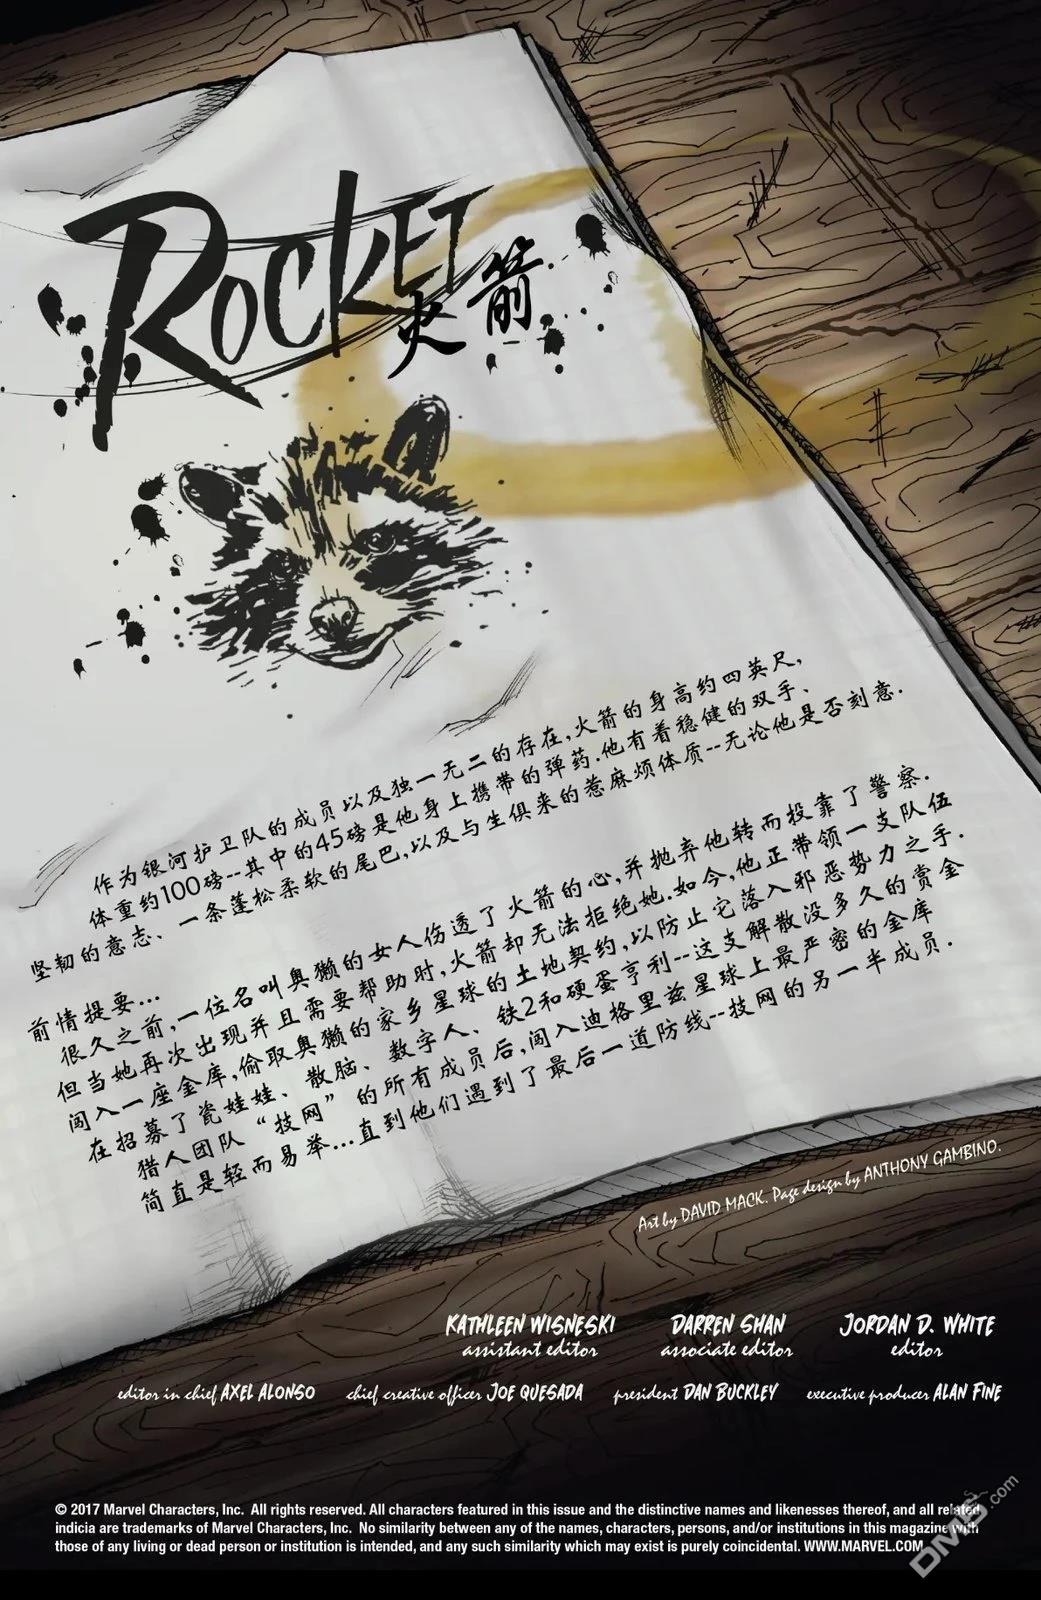 ROCKET
火箭
作为银河护卫队的成员以及独一无二的存在,火箭的身高约四英尺,
体重约100磅--其中的45磅是他身上携带的弹药.他有着稳健的双手、
坚韧的意志、一条蓬松柔软的尾巴,以及与生俱来的惹麻烦体质--无论他是否刻意.
前情提要...
很久之前,一位名叫奥獭的女人伤透了火箭的心,并抛弃他转而投靠了警察.
但当她再次出现并且需要帮助时,火箭却无法拒绝她.如今,他正带领一支队伍
闯入一座金库,偷取奥獭的家乡星球的土地契约,以防止它落入邪恶势力之手.
在招募了瓷娃娃、散脑、数字人、铁2和硬蛋亨利--这支解散没多久的赏金
猎人团队“技网”的所有成员后,闯入迪格里兹星球上最严密的金库
简直是轻而易举...直到他们遇到了最后一道防线--技网的另一半成员.
Art by DAVID MACK. Page design by ANTHONY GAMBINO.
KATHLEEN WISNESKI DARREN SHAN JORDAN D. WHITE
assistant editor associate editor editor
editor in chief AXEL ALONSO chief creative officer JOE QUESADA president DAN BUCKLEY executive producer ALAN FINE
© 2017 Marvel Characters, Inc. All rights reserved. All characters featured in this issue and the distinctive names and likenesses thereof, and all related
indicia are trademarks of Marvel Characters, Inc. No similarity between any of the names, characters, persons, and/or institutions in this magazine with
those of any living or dead person or institution is intended, and any such similarity which may exist is purely coincidental. WWW.MARVEL.COM
DMB.com